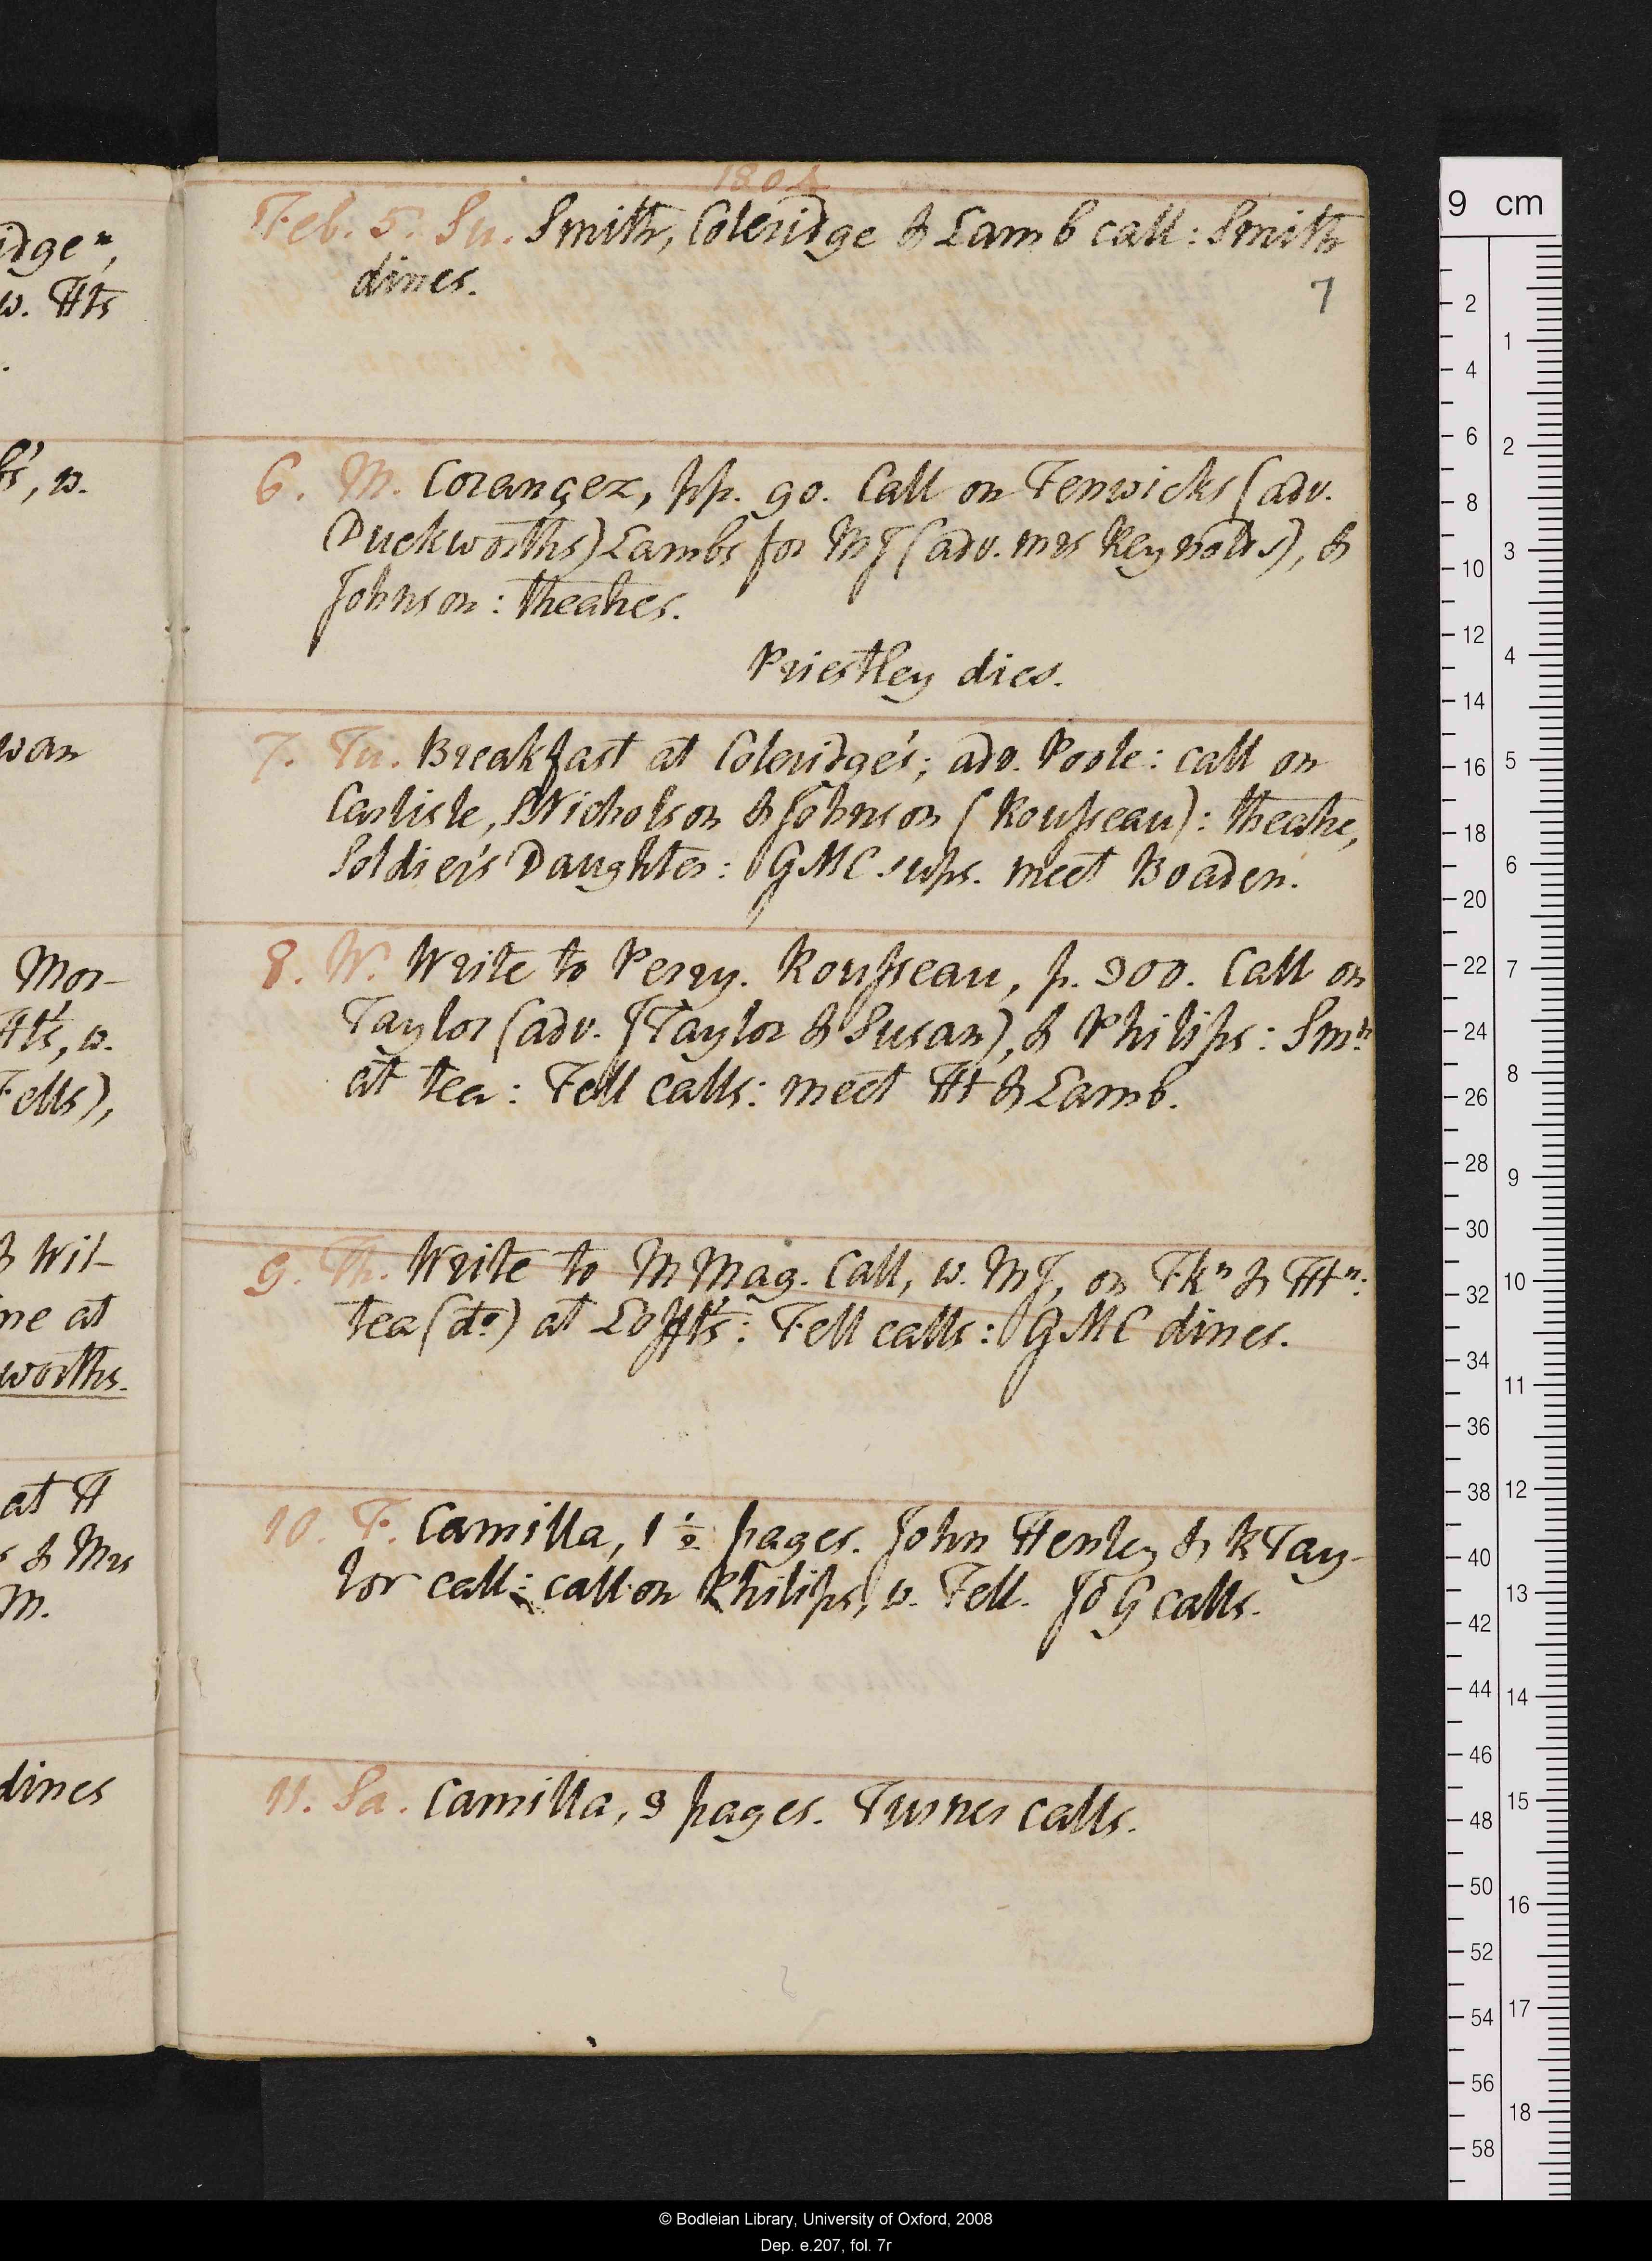 idgeⁿ,
w. Hts
.
bs', w.
wan
Mor-
Hts', w.
Fells),
& Wil-
ne at
worths.
at H
s & Mrs
M.
dines
1804
Feb. 5. Su. Smith, Coleridge & Lamb call: Smith
dines.
7
6. M. Corançez, pp. 90. Call on Fenwicks (adv.
Duckworths) Lambs for MJ (adv. mrs Reynolds), &
Johnson: theatres.
Priestley dies.
7. Tu. Breakfast at Coleridge's; adv. Poole: call on
Carlisle, Nicholson & Johnson (Rousseau): theatre,
Soldier's Daughter: GMC sups. meet Boaden.
8. W. Write to Perry. Rousseau, p. 300. Call on
Taylor (adv. J Taylor & Susan), & Philips: Smʰ
at tea: Fell calls: meet Ht & Lamb.
9. Th. Write to M Mag. Call, w. MJ, on Fkⁿ & Htⁿ:
tea (dº) at Lofft's: Fell calls: GMC dines.
10. F. Camilla, 1 ½ pages. John Henley & R Tay-
lor call: call on Philips, v. Fell. Jo G calls.
11. Sa. Camilla, 3 pages. Turner calls.
9 cm
2
4
6
8
10
12
14
16
18
20
22
24
26
28
30
32
34
36
38
40
42
44
46
48
50
52
54
56
58
1
2
3
4
5
6
7
8
9
10
11
12
13
14
15
16
17
18
© Bodleian Library, University of Oxford, 2008
Dep. e.207, fol. 7r